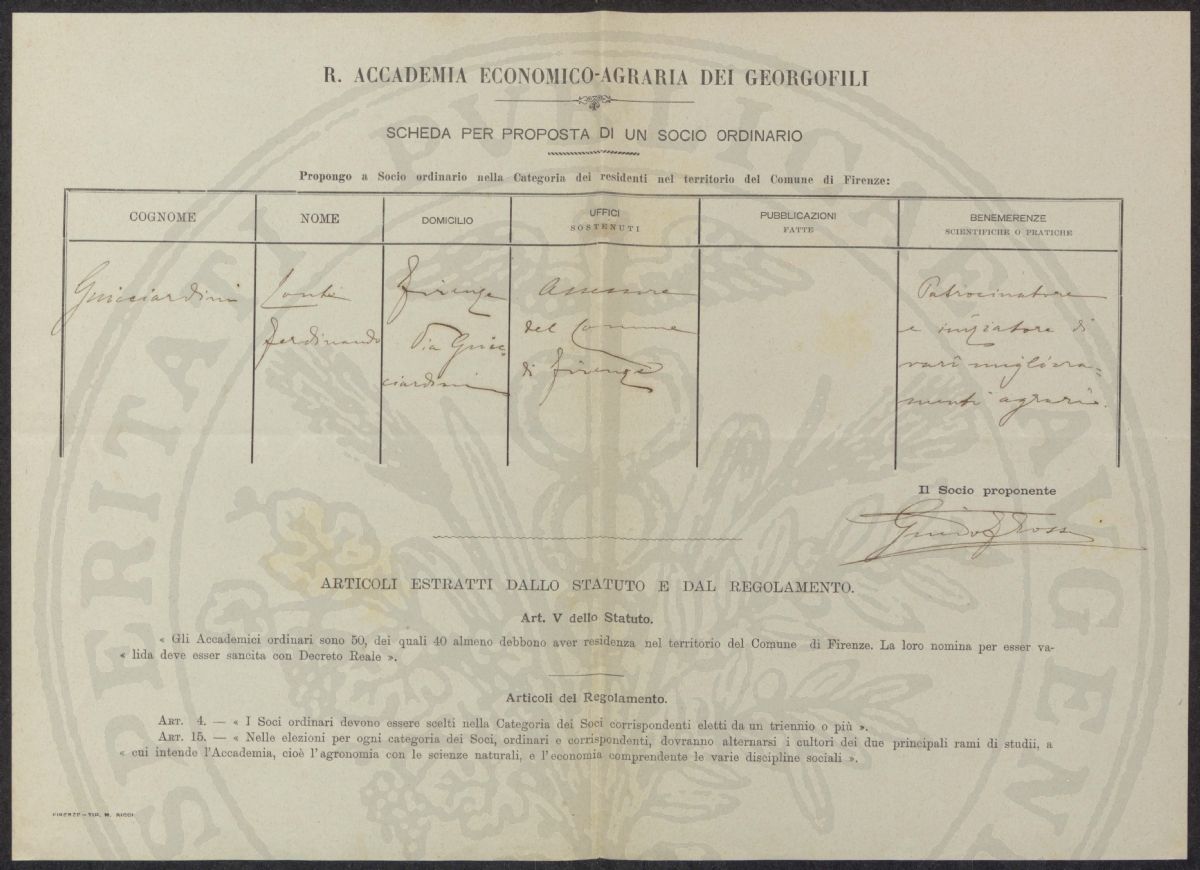 R. ACCADEMIA ECONOMICO-AGRARIA DEI GEORGOFILI
SCHEDA PER PROPOSTA DI UN SOCIO ORDINARIO
Propongo a Socio ordinario nella Categoria dei residenti nel territorio del Comune di Firenze:
COGNOME
NOME
DOMICILIO
UFFICI
SOSTENUTI
PUBBLICAZIONI
FATTE
BENEMERENZE
SCIENTIFICHE O PRATICHE
Guicciardini
Conte
Ferdinando
Firenze
Via Guic-
ciardini
Assessore
del Comune
di Firenze
Patrocinatore
e iniziatore di
varî migliora-
menti agrarî.
Il Socio proponente
Guido
ARTICOLI ESTRATTI DALLO STATUTO E DAL REGOLAMENTO.
Art. V dello Statuto.
« Gli Accademici ordinari sono 50, dei quali 40 almeno debbono aver residenza nel territorio del Comune di Firenze. La loro nomina per esser va-
« lida deve esser sancita con Decreto Reale ».
Articoli del Regolamento.
ART. 4. — « I Soci ordinari devono essere scelti nella Categoria dei Soci corrispondenti eletti da un triennio o più ».
ART. 15. — « Nelle elezioni per ogni categoria dei Soci, ordinari e corrispondenti, dovranno alternarsi i cultori dei due principali rami di studii, a
« cui intende l'Accademia, cioè l'agronomia con le scienze naturali, e l'economia comprendente le varie discipline sociali ».
FIRENZE - TIP. M. RICCI
PROSPERITATI PUBLICAE AUGENDAE